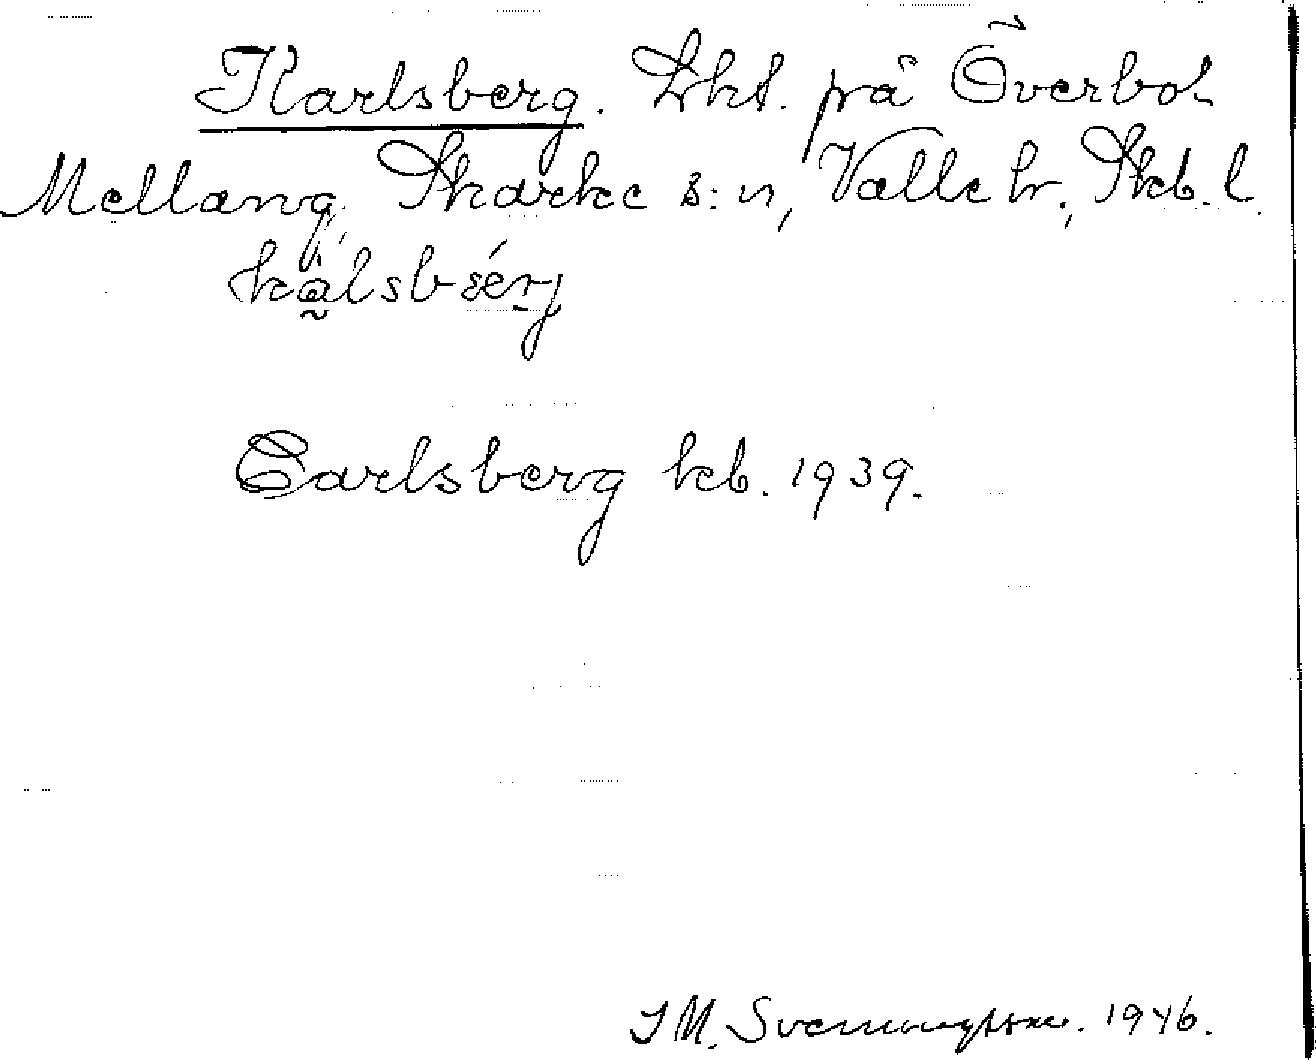 Karlsberg. Lht. på Överbol
Mellang, Skärke s:n, Valle hr., Skb. l.
Carlsberg kb. 1939.
I M. Svenungsson. 1946.